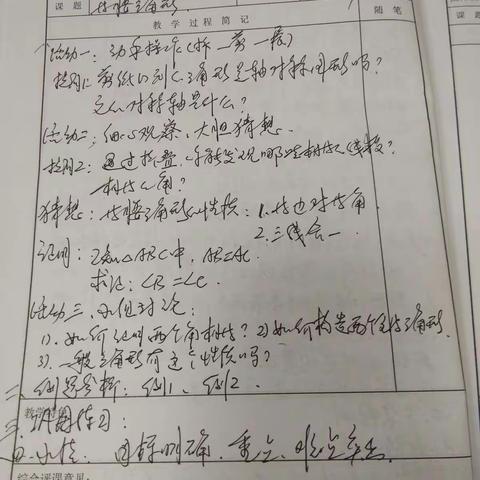 课题 等腰三角形. 随笔
课题
教学过程简记
活动一: 动手操作(折一剪一展)
提问1: 剪纸得到的三角形是轴对称图形吗?
它的对称轴是什么?
活动二: 细心观察、大胆猜想.
提问2: 通过折叠, 你能发现哪些相等的线段?
相等的角?
猜想: 等腰三角形的性质: 1. 等边对等角
2. 三线合一.
证明: 已知△ABC中, AB=AC.
求证: ∠B=∠C.
活动三、小组讨论:
1). 如何证明两个角相等? 2) 如何构造两个全等三角形.
3). 一般三角形有这个性质吗?
二、例题分析: 例1、例2.
教学
三、巩固练习:
四. 小结: 目标明确. 重点、难点突出.
综合评课意见: